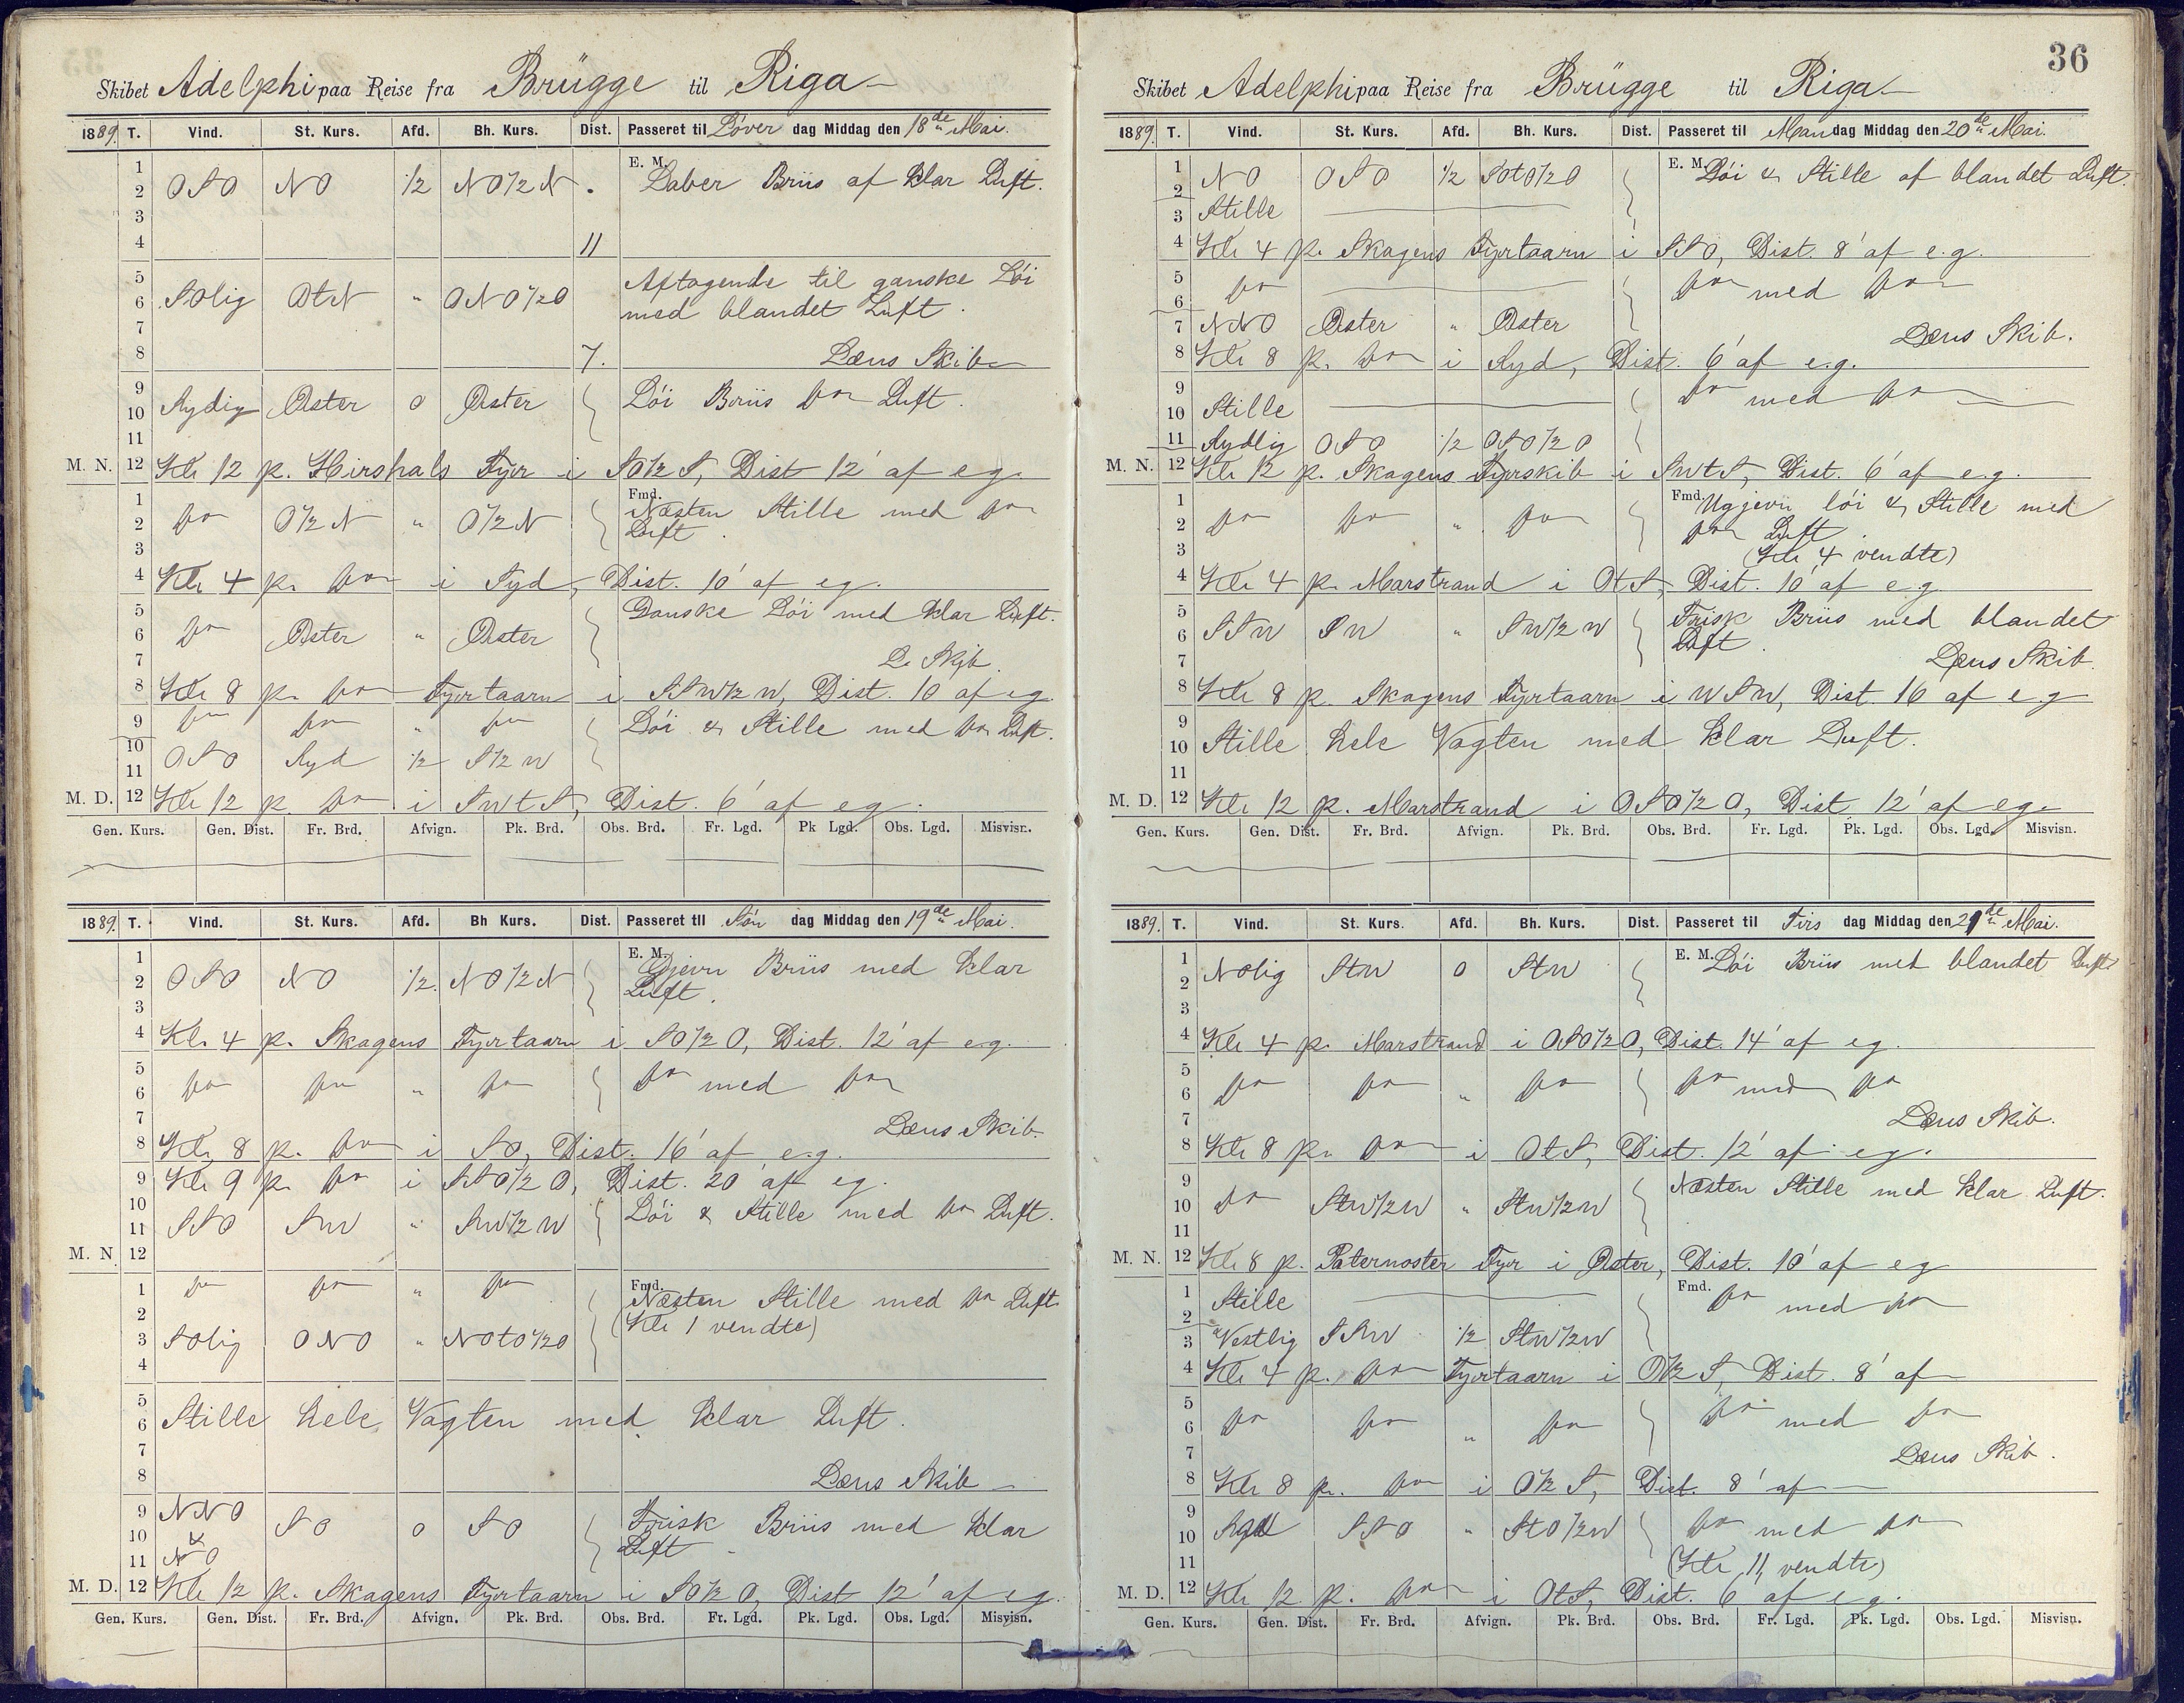 36
Skibet Adelphi paa Reise fra Brügge til Riga
1889. T. Vind. St. Kurs. Afd. Bh. Kurs. Dist. Passeret til Löver dag Middag den 18de Mai.
1 E. M.
2 OSO NO ½ NO½N Laber Briis af klar Luft.
3
4 11
5 Aftagende til ganske Löi
6 SOlig OtN " ONO½O med blandet Luft.
7
8 7. Læns Skib
9
10 Sydig Øster 0 Øster Löi Briis do Luft.
11
M. N. 12 Kl. 12 p. Hirshals Fyr i SO½S, Dist 12' af eg.
1 Fmd. Næsten Stille med do
2 do O½N " O½N Luft.
3
4 Kl. 4 p. do i Syd, Dist. 10' af eg.
5 Ganske Löi med klar Luft.
6 do Øster " Øster
7 L. Skib.
8 Kl. 8 p. do Fyrtaarn i SSW½W, Dist. 10 af eg.
9 do do " do Löi & Stille med do Luft.
10 OSO Syd ½ S½W
11
M. D. 12 Kl. 12 p. do i SWtS, Dist. 6' af eg.
Gen. Kurs. Gen. Dist. Fr. Brd. Afvign. Pk. Brd. Obs. Brd. Fr. Lgd. Pk Lgd. Obs. Lgd. Misvisn.
1889. T. Vind. St. Kurs. Afd. Bh Kurs. Dist. Passeret til Sön dag Middag den 19de Mai.
1 E. M. Gjevn Briis med klar
2 OSO NO ½. NO½N Luft.
3
4 Kl. 4 p. Skagens Fyrtaarn i SO½O, Dist. 12' af eg.
5
6 do do " do do med do
7 Læns Skib.
8 Kl. 8 p. do i SO, Dist. 16' af e.g.
9 Kl. 9 p. do i SSO½O, Dist. 20' af eg.
10 Löi & Stille med do Luft.
11 SSO SW " SW½W
M. N 12
1 do do " do Fmd. Næsten Stille med do Luft.
2 (Kl. 1 vendte)
3 SOlig ONO " NOtO½O
4
5
6 Stille hele Vagten med klar Luft.
7
8 Læns Skib
9 NNO Frisk Briis med klar
10 & SO 0 SO Luft
11 NO
M. D. 12 Kl. 12 p. Skagens Fyrtaarn i SO½O, Dist 12' af eg.
Gen. Kurs. Gen. Dist. Fr. Brd. Afvign. Pk. Brd. Obs. Brd. Fr. Lgd. Pk. Lgd. Obs. Lgd. Misvisn.
Skibet Adelphi paa Reise fra Brügge til Riga
1889. T. Vind. St. Kurs. Afd. Bh. Kurs. Dist. Passeret til Mandag Middag den 20de Mai.
1 E. M. Löi & Stille af blandet Luft.
2 NO OSO ½ SOtO½O
3 Stille
4 Kl. 4 p. Skagens Fyrtaarn i SSO, Dist. 8' af e.g.
5
6 do do med do
7 NNO Øster " Øster Læns Skib.
8 Kl. 8 p. do i Syd, Dist. 6' af e.g.
9 do med do
10 Stille
11 Sydlig OSO ½ OSO½O
M. N. 12 Kl. 12 p. Skagens Fyrskib i SWtS, Dist. 6' af e.g.
1 Fmd. Ugjevn löi & Stille med
2 do do " do do Luft.
3 (Kl. 4 vendte)
4 Kl. 4 p. Marstrand i OtS, Dist. 10' af eg
5 Frisk Briis med blandet
6 SSW SW " SW½W Luft.
7 Læns Skib.
8 Kl. 8 p. Skagens Fyrtaarn i WSW, Dist. 16 af eg
9
10 Stille hele Vagten med klar Luft.
11
M. D. 12 Kl. 12 p. Marstrand i OSO½O, Dist 12' af eg.
Gen. Kurs. Gen. Dist. Fr. Brd. Afvign. Pk. Brd. Obs. Brd. Fr. Lgd. Pk. Lgd. Obs. Lgd. Misvisn.
1889. T. Vind. St. Kurs. Afd. Bh. Kurs. Dist. Passeret til Tirs dag Middag den 21de Mai.
1 E. M. Löi Briis med blandet Luft
2 NOlig StW 0 StW
3
4 Kl. 4 p. Marstrand i OSO½O, Dist. 14' af eg.
5
6 do do " do do med do
7 Læns Skib.
8 Kl. 8 p. do i OtS, Dist. 12' af eg.
9 Næsten Stille med klar Luft.
10 do StW½W " StW½W
11
M. N. 12 Kl. 8 p. Paternoster Fyr i Øster, Dist. 10' af eg
1 Stille Fmd. do med do
2
3 Vestlig SSW ½ StW½W
4 Kl. 4 p. do Fyrtaarn i O½S, Dist. 8' af
5
6 do do " do do med do
7 Læns Skib.
8 Kl. 8 p. do i O½S, Dist. 8' af
9
10 Syd SSO " StO½W do med do
11 (Kl. 11 vendte)
M. D. 12 Kl. 12 p. do i OtS, Dist. 6' af eg.
Gen. Kurs. Gen. Dist. Fr. Brd. Afvign. Pk. Brd. Obs. Brd. Fr. Lgd. Pk. Lgd. Obs. Lgd. Misvisn.